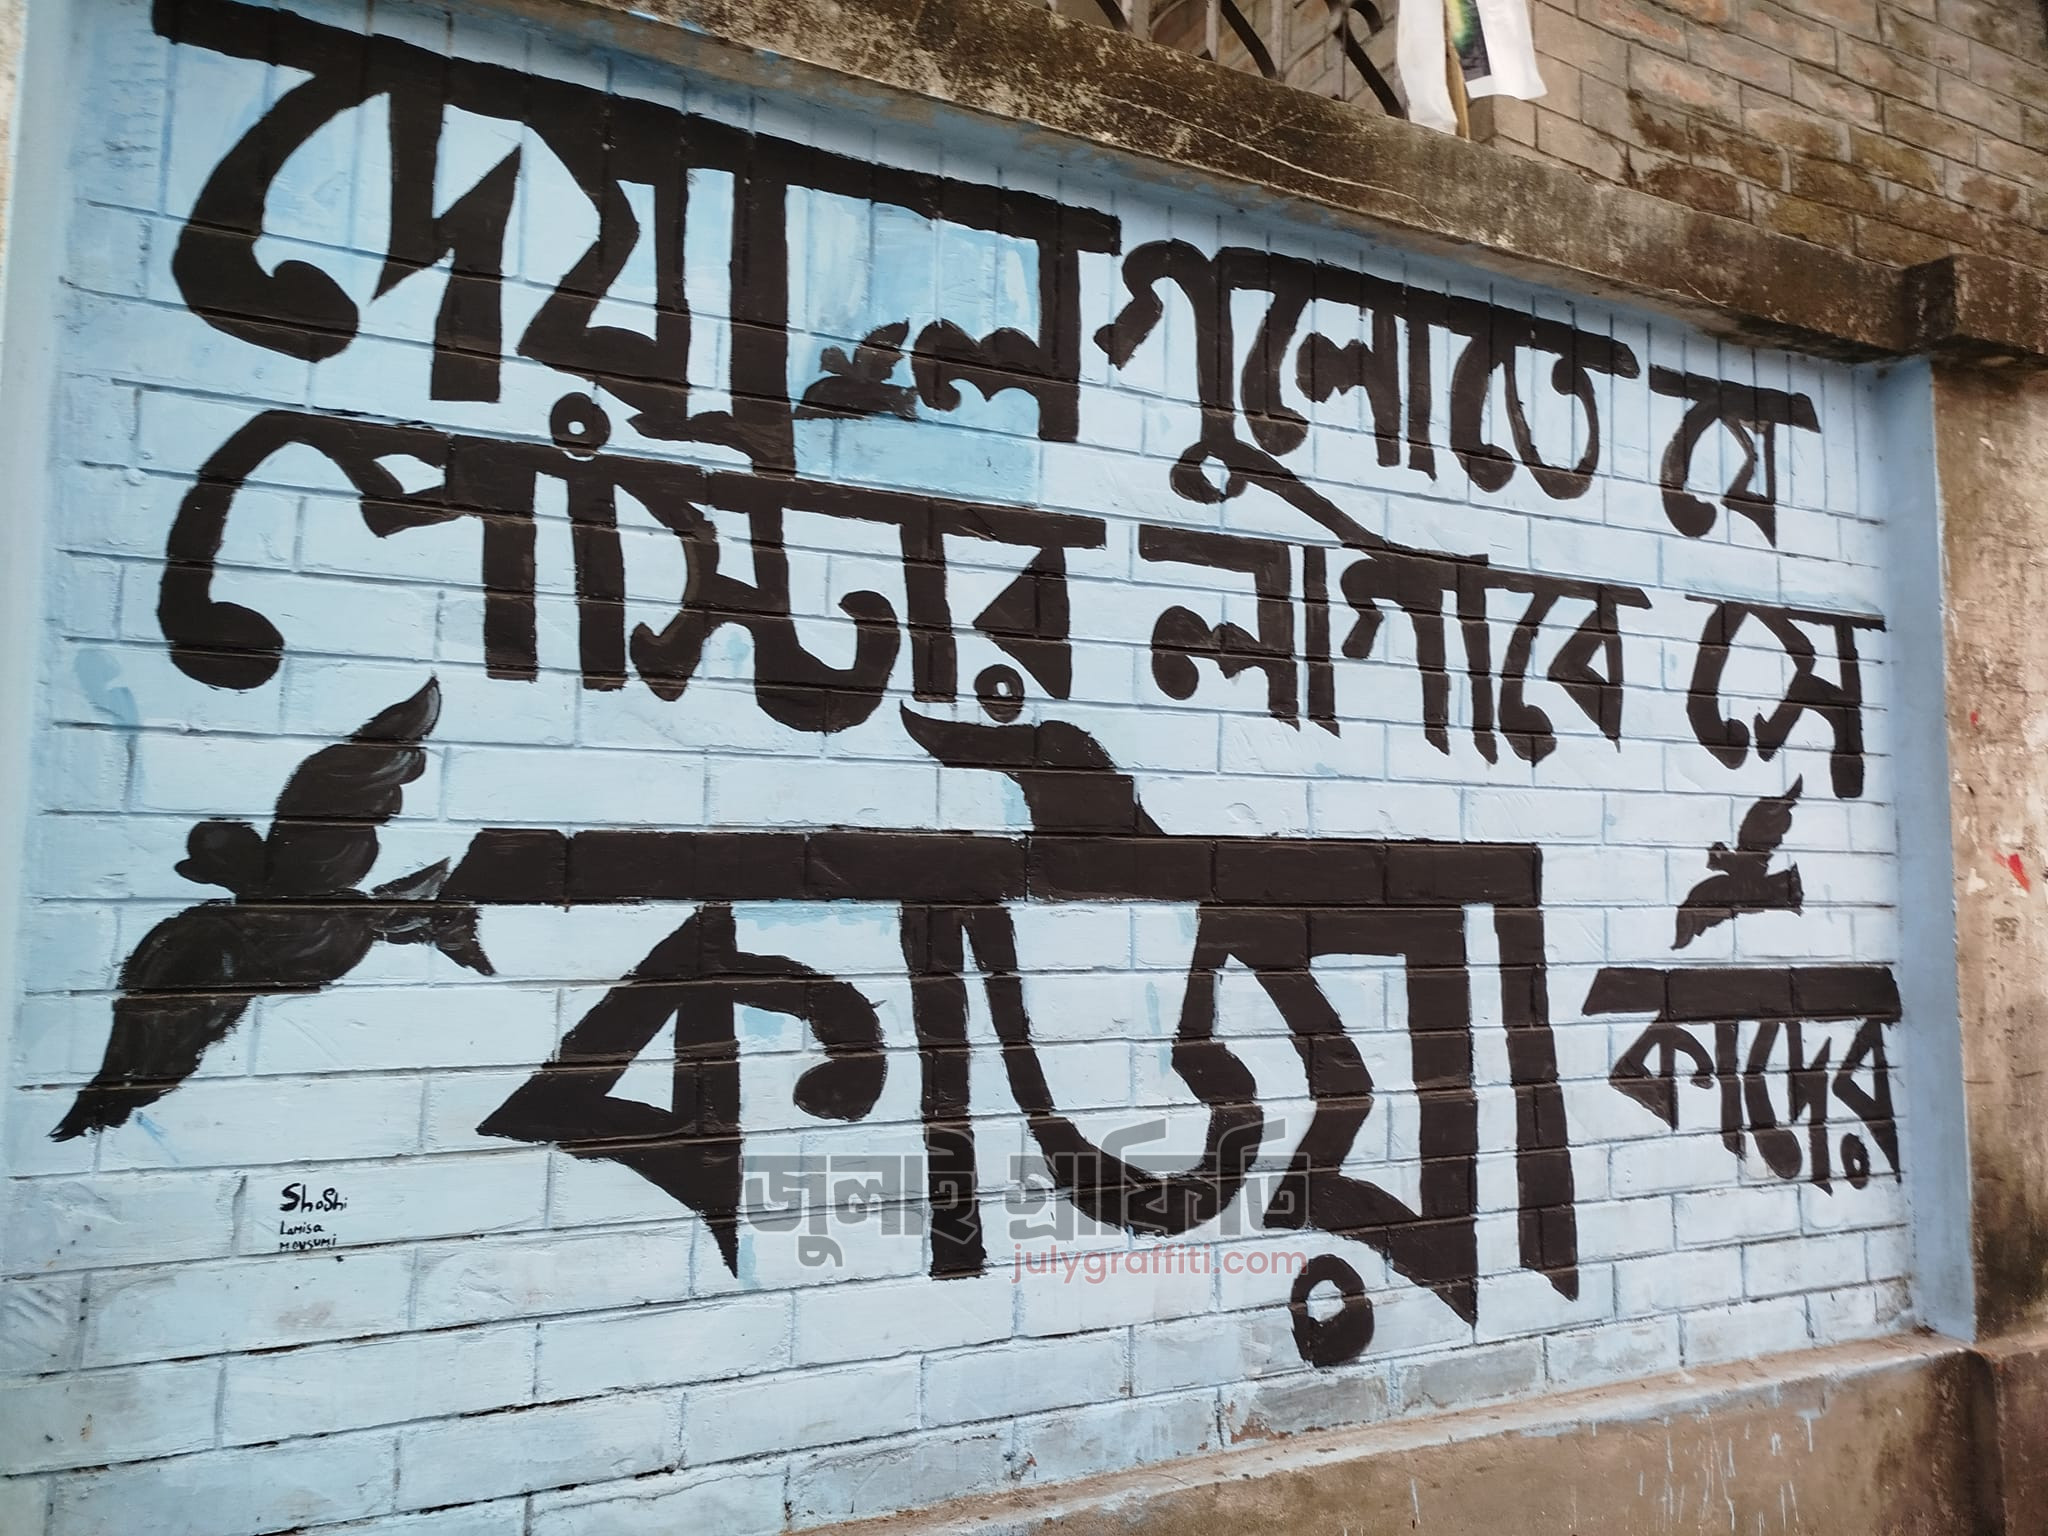 দেয়াল গুলোতে যে
পোস্টার লাগাবে সে
কাতয়া কাদের
Shoshi
Lamisa
Mousumi
জুলাই গ্রাফিতি
julygraffiti.com